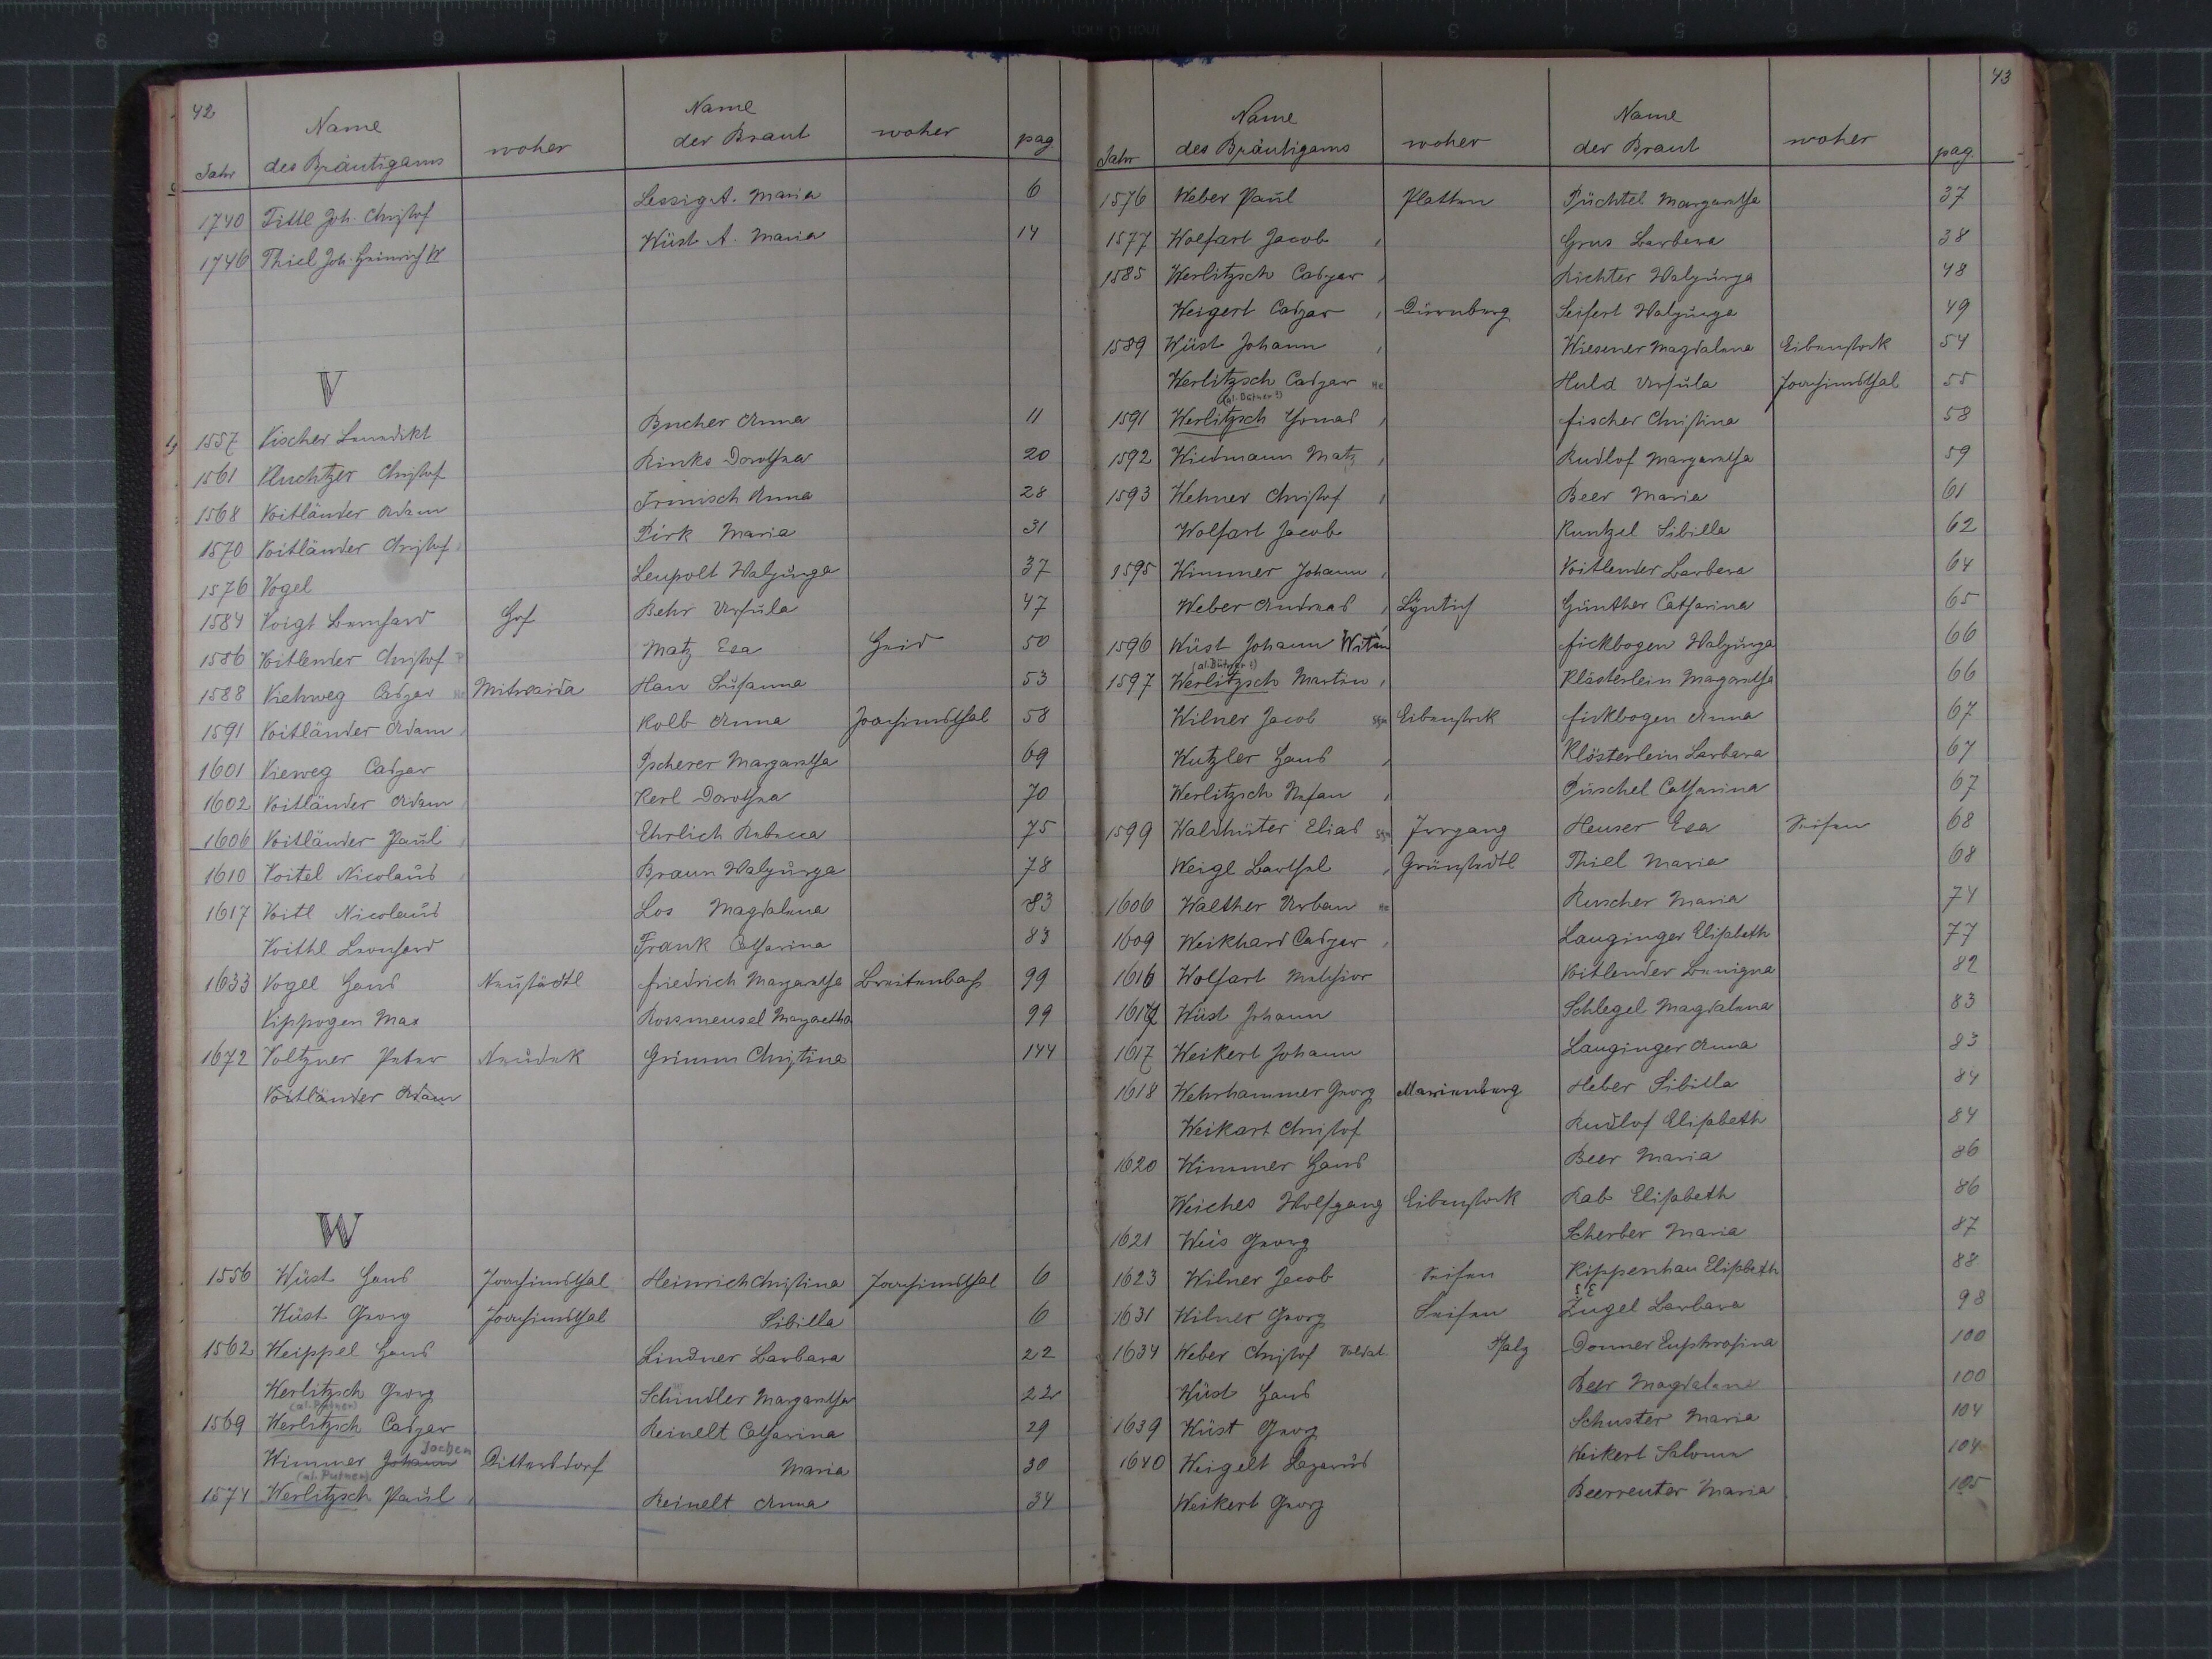 42
Jahr Name des Bräutigams woher Name der Braut woher pag.
1740 Tittl Joh. Christof Lessig A. Maria 6
1746 Thiel Joh. Heinrich W Wüst A. Maria 14
V
1557 Vischer Benedikt Bucher Anna 11
1561 Vluchtzer Christof Rinks Dorothea 20
1568 Voitländer Adam Irmisch Anna 28
1570 Voitländer Christof Pirk Maria 31
1576 Vogel Leupolt Walpurga 37
1584 Voigt Bernhard Hof Behr Ursula 47
1586 Voitlender Christof Matz Eva Haid 50
1588 Viehweg Caspar Mitweida Han Susanna 53
1591 Voitländer Adam Kolb Anna Joachimsthal 58
1601 Vieweg Caspar Pscherer Margaretha 69
1602 Voitländer Adam Kerl Dorothea 70
1606 Voitländer Paul Ehrlich Rebecca 75
1610 Voitel Nicolaus Braun Walpurga 78
1617 Voitl Nicolaus Los Magdalena 83
Voithl Leonhard Frank Catharina 83
1633 Vogel Hans Neustädtl Friedrich Margaretha Breitenbach 99
Vippogen Max Rossmeusel Margaretha 99
1672 Voltzner Peter Neudek Grimm Christina 144
Voitländer Adam
W
1556 Wüst Hans Joachimsthal Heinrich Christina Joachimsthal 6
Wüst Georg Joachimsthal Sibilla 6
1562 Weippel Hans Lindner Barbara 22
Werlitzsch Georg Schindler Margaretha 22
(al. Putner)
1569 Werlitzsch Caspar Reinelt Catharina 29
Jochen
Wimmer Johann Dittersdorf Maria 30
(al. Putner)
1574 Werlitzsch Paul Reinelt Anna 34
43
Jahr Name des Bräutigams woher Name der Braut woher pag.
1576 Weber Paul Platten Püchtel Margaretha 37
1577 Wolfart Jacob Grus Barbara 38
1585 Werlitzsch Caspar Richter Walpurga 48
Weigert Caspar Dürnberg Seifert Walpurga 49
1589 Wüst Johann Wiesener Magdalena Eibenstock 54
Werlitzsch Caspar He Huld Ursula Joachimsthal 55
(al. Dütner?)
1591 Werlitzsch Thomas Fischer Christina 58
1592 Wiedmann Matz Rudlof Margaretha 59
1593 Wehner Christof Beer Maria 61
Wolfart Jacob Kuntzel Sibilla 62
1595 Wimmer Johann Voitlender Barbara 64
Weber Andreas Günther Catharina 65
1596 Wüst Johann Fickbogen Walpurga 66
(al. Dütner?)
1597 Werlitzsch Martin Klösterlein Margaretha 66
Wilner Jacob Eibenstock Fickbogen Anna 67
Wutzler Hans Klösterlein Barbara 67
Werlitzsch Stefan Püschel Catharina 67
1599 Waldhüter Elias Jugang Heuser Eva Seifen 68
Weigl Barthel Grünstädtl Thiel Maria 68
1606 Walther Urban He Ruscher Maria 74
1609 Weikhard Caspar Lauginger Elisabeth 77
1616 Wolfart Melchior Voitlender Benigna 82
1617 Wüst Johann Schlegel Magdalena 83
1617 Weikert Johann Lauginger Anna 83
1618 Wehrhammer Georg Marienberg Heber Sibilla 84
Weikart Christof Rudlof Elisabeth 84
1620 Wimmer Hans Beer Maria 86
Weiches Wolfgang Eibenstock Rab Elisabeth 86
1621 Weis Georg Scherber Maria 87
1623 Wilner Jacob Seifen Kippenhan Elisabeth 88
1631 Wilner Georg Seifen Zugel Barbara 98
1634 Weber Christof Soldat Pfalz Donner Euphrosina 100
Wüst Hans Beer Magdalene 100
1639 Wüst Georg Schuster Maria 104
1640 Weigelt Lazarus Weikert Salome 104
Weikert Georg Beerreuter Maria 105